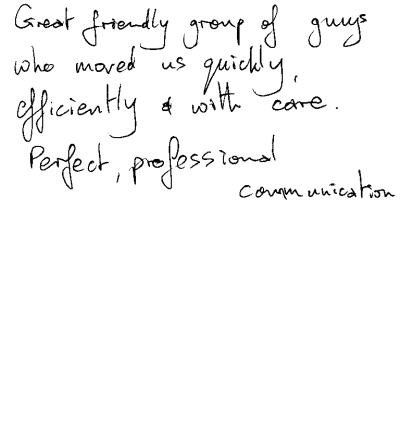 Great friendly group of guys
who moved us quickly,
efficiently & with care.
Perfect, professional
communication